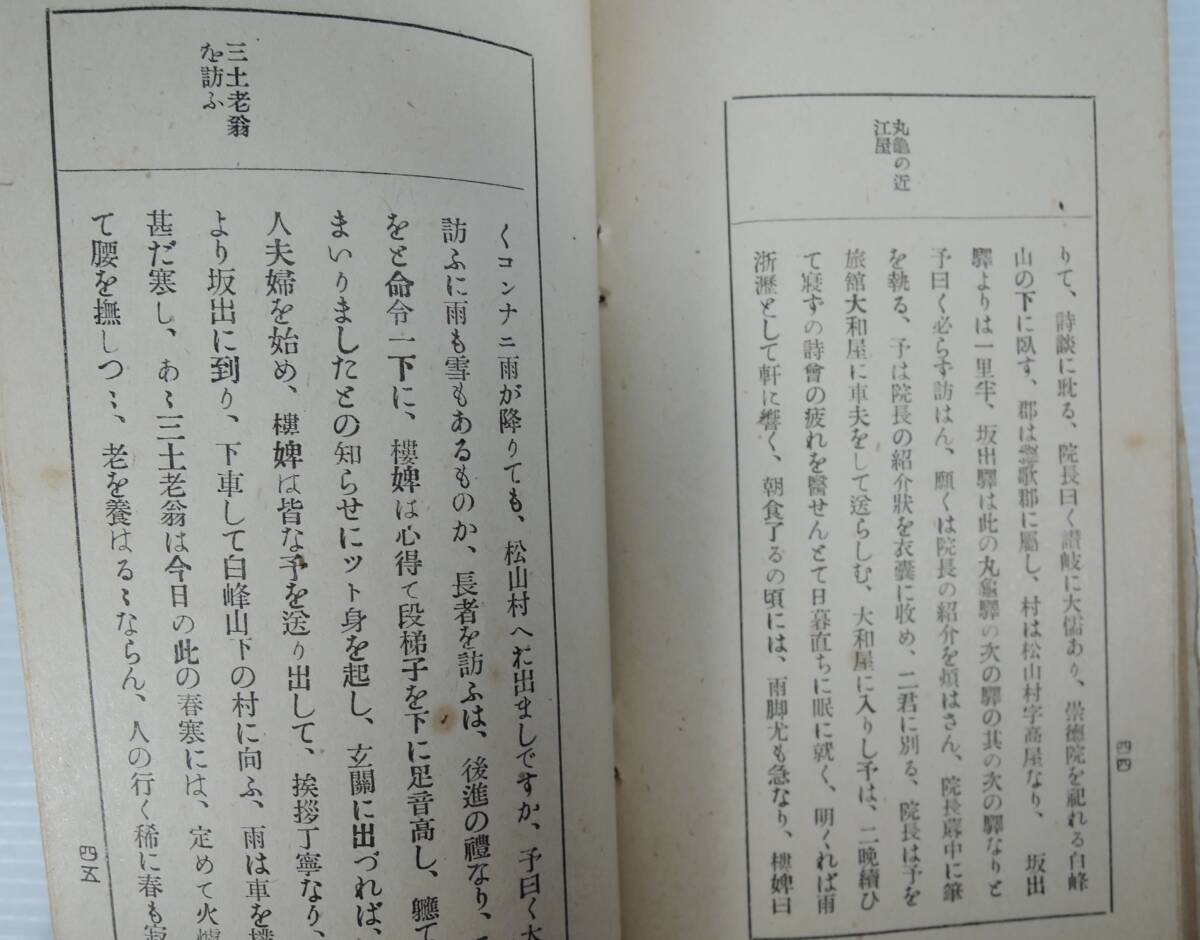 丸龜の近
江屋
りて、詩談に耽る、院長曰く讃岐に大儒あり、崇德院を祀れる白峰
山の下に臥す、郡は綾歌郡に屬し、村は松山村字高屋なり、坂出
驛よりは一里半、坂出驛は此の丸龜驛の次の驛の其の次の驛なりと
予曰く必らず訪はん、願くは院長の紹介を煩はさん、院長席中に筆
を執る、予は院長の紹介狀を衣囊に收め、二君に別る、院長は予を
旅館大和屋に車夫をして送らしむ、大和屋に入りし予は、二晩續ひ
て寢ずの詩會の疲れを醫せんとて日暮直ちに眠に就く、明くれば雨
淅瀝として軒に響く、朝食了るの頃には、雨脚尤も急なり、樓婢曰
四四
三土老翁
を訪ふ
くコンナニ雨が降りても、松山村へお出ましですか、予曰く
訪ふに雨も雪もあるものか、長者を訪ふは、後進の禮なり、
をと命令一下に、樓婢は心得て段梯子を下に足音高し、軈て
まいりましたとの知らせにツト身を起し、玄關に出づれば、
人夫婦を始め、樓婢は皆な予を送り出して、挨拶丁寧なり、
より坂出に到り、下車して白峰山下の村に向ふ、雨は車を
甚だ寒し、あゝ三土老翁は今日の此の春寒には、定めて火
て腰を撫しつゝ、老を養はるゝならん、人の行く稀に春も寂
四五